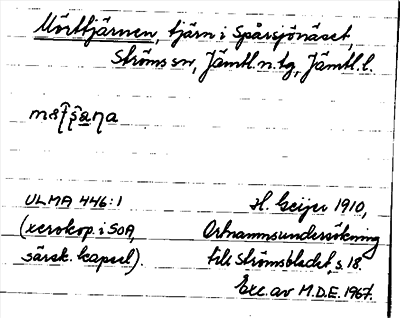 Mörttjärnen, tjärn i Spårsjönäset,
Ströms sn, Jämtl. n. tg, Jämtl. l.
ULMA 446:1
H. Geijer 1910,
(xerokop. i SOA,
Ortnammsundersökning
särsk. kapsel).
till Strömsbladet, s. 18.
Exc. av M.D.E. 1967.